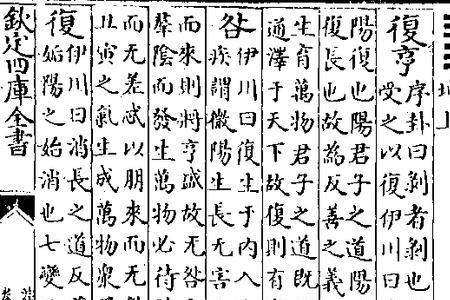 上
復亨序卦曰剥者剥也
受之以復伊川曰
陽復也陽君子之道陽
復長也故為反善之義
生育萬物君子之道既
通澤于天下故復則有
咎伊川曰復生于内入
疾謂微陽生長无害
而來則將亨盛故无咎
羣陰而發生萬物必待
而无差忒以朋來而无
丑寅之氣生成萬物衆
復伊川曰消長之道反
姤陽之始消也七變
欽定四庫全書